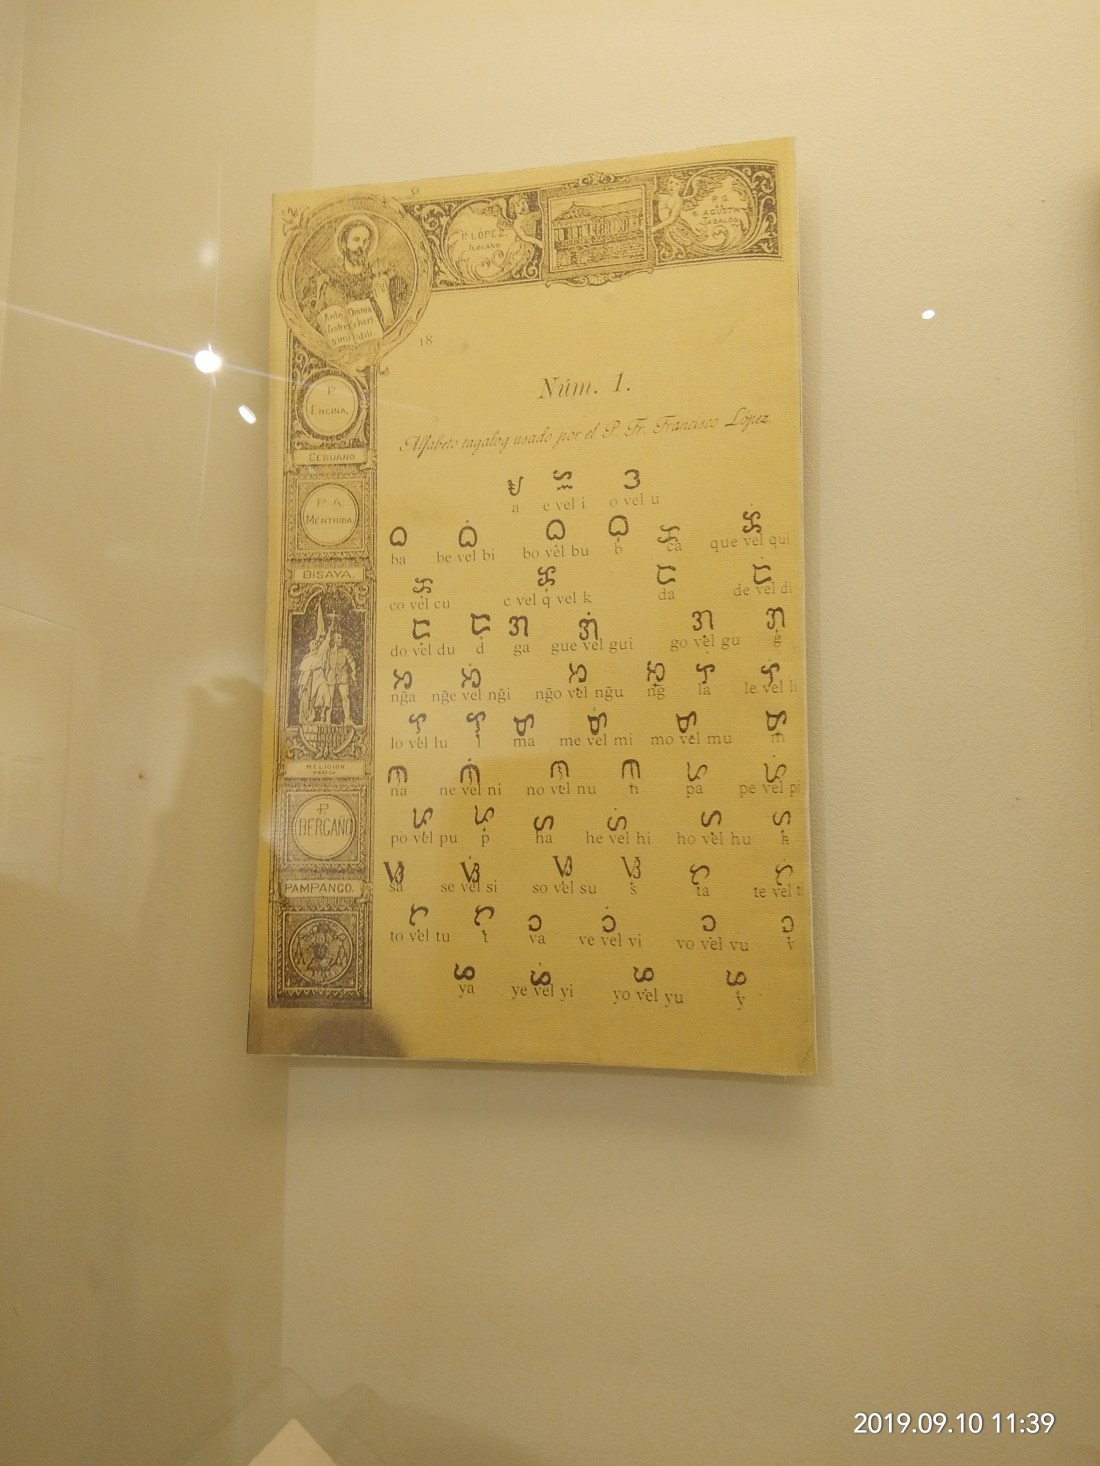 P. LÓPEZ,
ILOCANO
P. G.
S. AGUSTÍN
TAGALOG
Ante Omnia
18
P.
ENCINA,
CEBUANO
P. A.
MÉNTRIDA,
BISAYA
RELIGION
P.
BERGAÑO
PAMPANGO.
Núm. 1.
Alfabeto tagalog usado por el P. Fr. Francisco López
ᜀ ᜁ ᜂ
a e vel i o vel u
ᜊ ᜊᜒ ᜊᜓ ᜊ᜔ ᜃ ᜃᜒ
ba be vel bi bo vel bu b ca que vel qui
ᜃᜓ ᜃ᜔ ᜇ ᜇᜒ
co vel cu c vel q vel k da de vel di
ᜇᜓ ᜇ᜔ ᜄ ᜄᜒ ᜄᜓ ᜄ᜔
do vel du d ga gue vel gui go vel gu g
ᜅ ᜅᜒ ᜅᜓ ᜅ᜔ ᜎ ᜎᜒ
ng̃a ng̃e vel ng̃i ng̃o vel ng̃u ng̃ la le vel li
ᜎᜓ ᜎ᜔ ᜋ ᜋᜒ ᜋᜓ ᜋ᜔
lo vel lu l ma me vel mi mo vel mu m
ᜈ ᜈᜒ ᜈᜓ ᜈ᜔ ᜉ ᜉᜒ
na ne vel ni no vel nu n pa pe vel pi
ᜉᜓ ᜉ᜔ ᜑ ᜑᜒ ᜑᜓ ᜑ᜔
po vel pu p ha he vel hi ho vel hu
ᜐ ᜐᜒ ᜐᜓ ᜐ᜔ ᜆ ᜆᜒ
sa se vel si so vel su s ta te vel t
ᜆᜓ ᜆ᜔ ᜏ ᜏᜒ ᜏᜓ ᜏ᜔
to vel tu t va ve vel vi vo vel vu v
ᜌ ᜌᜒ ᜌᜓ ᜌ᜔
ya ye vel yi yo vel yu y
2019.09.10 11:39